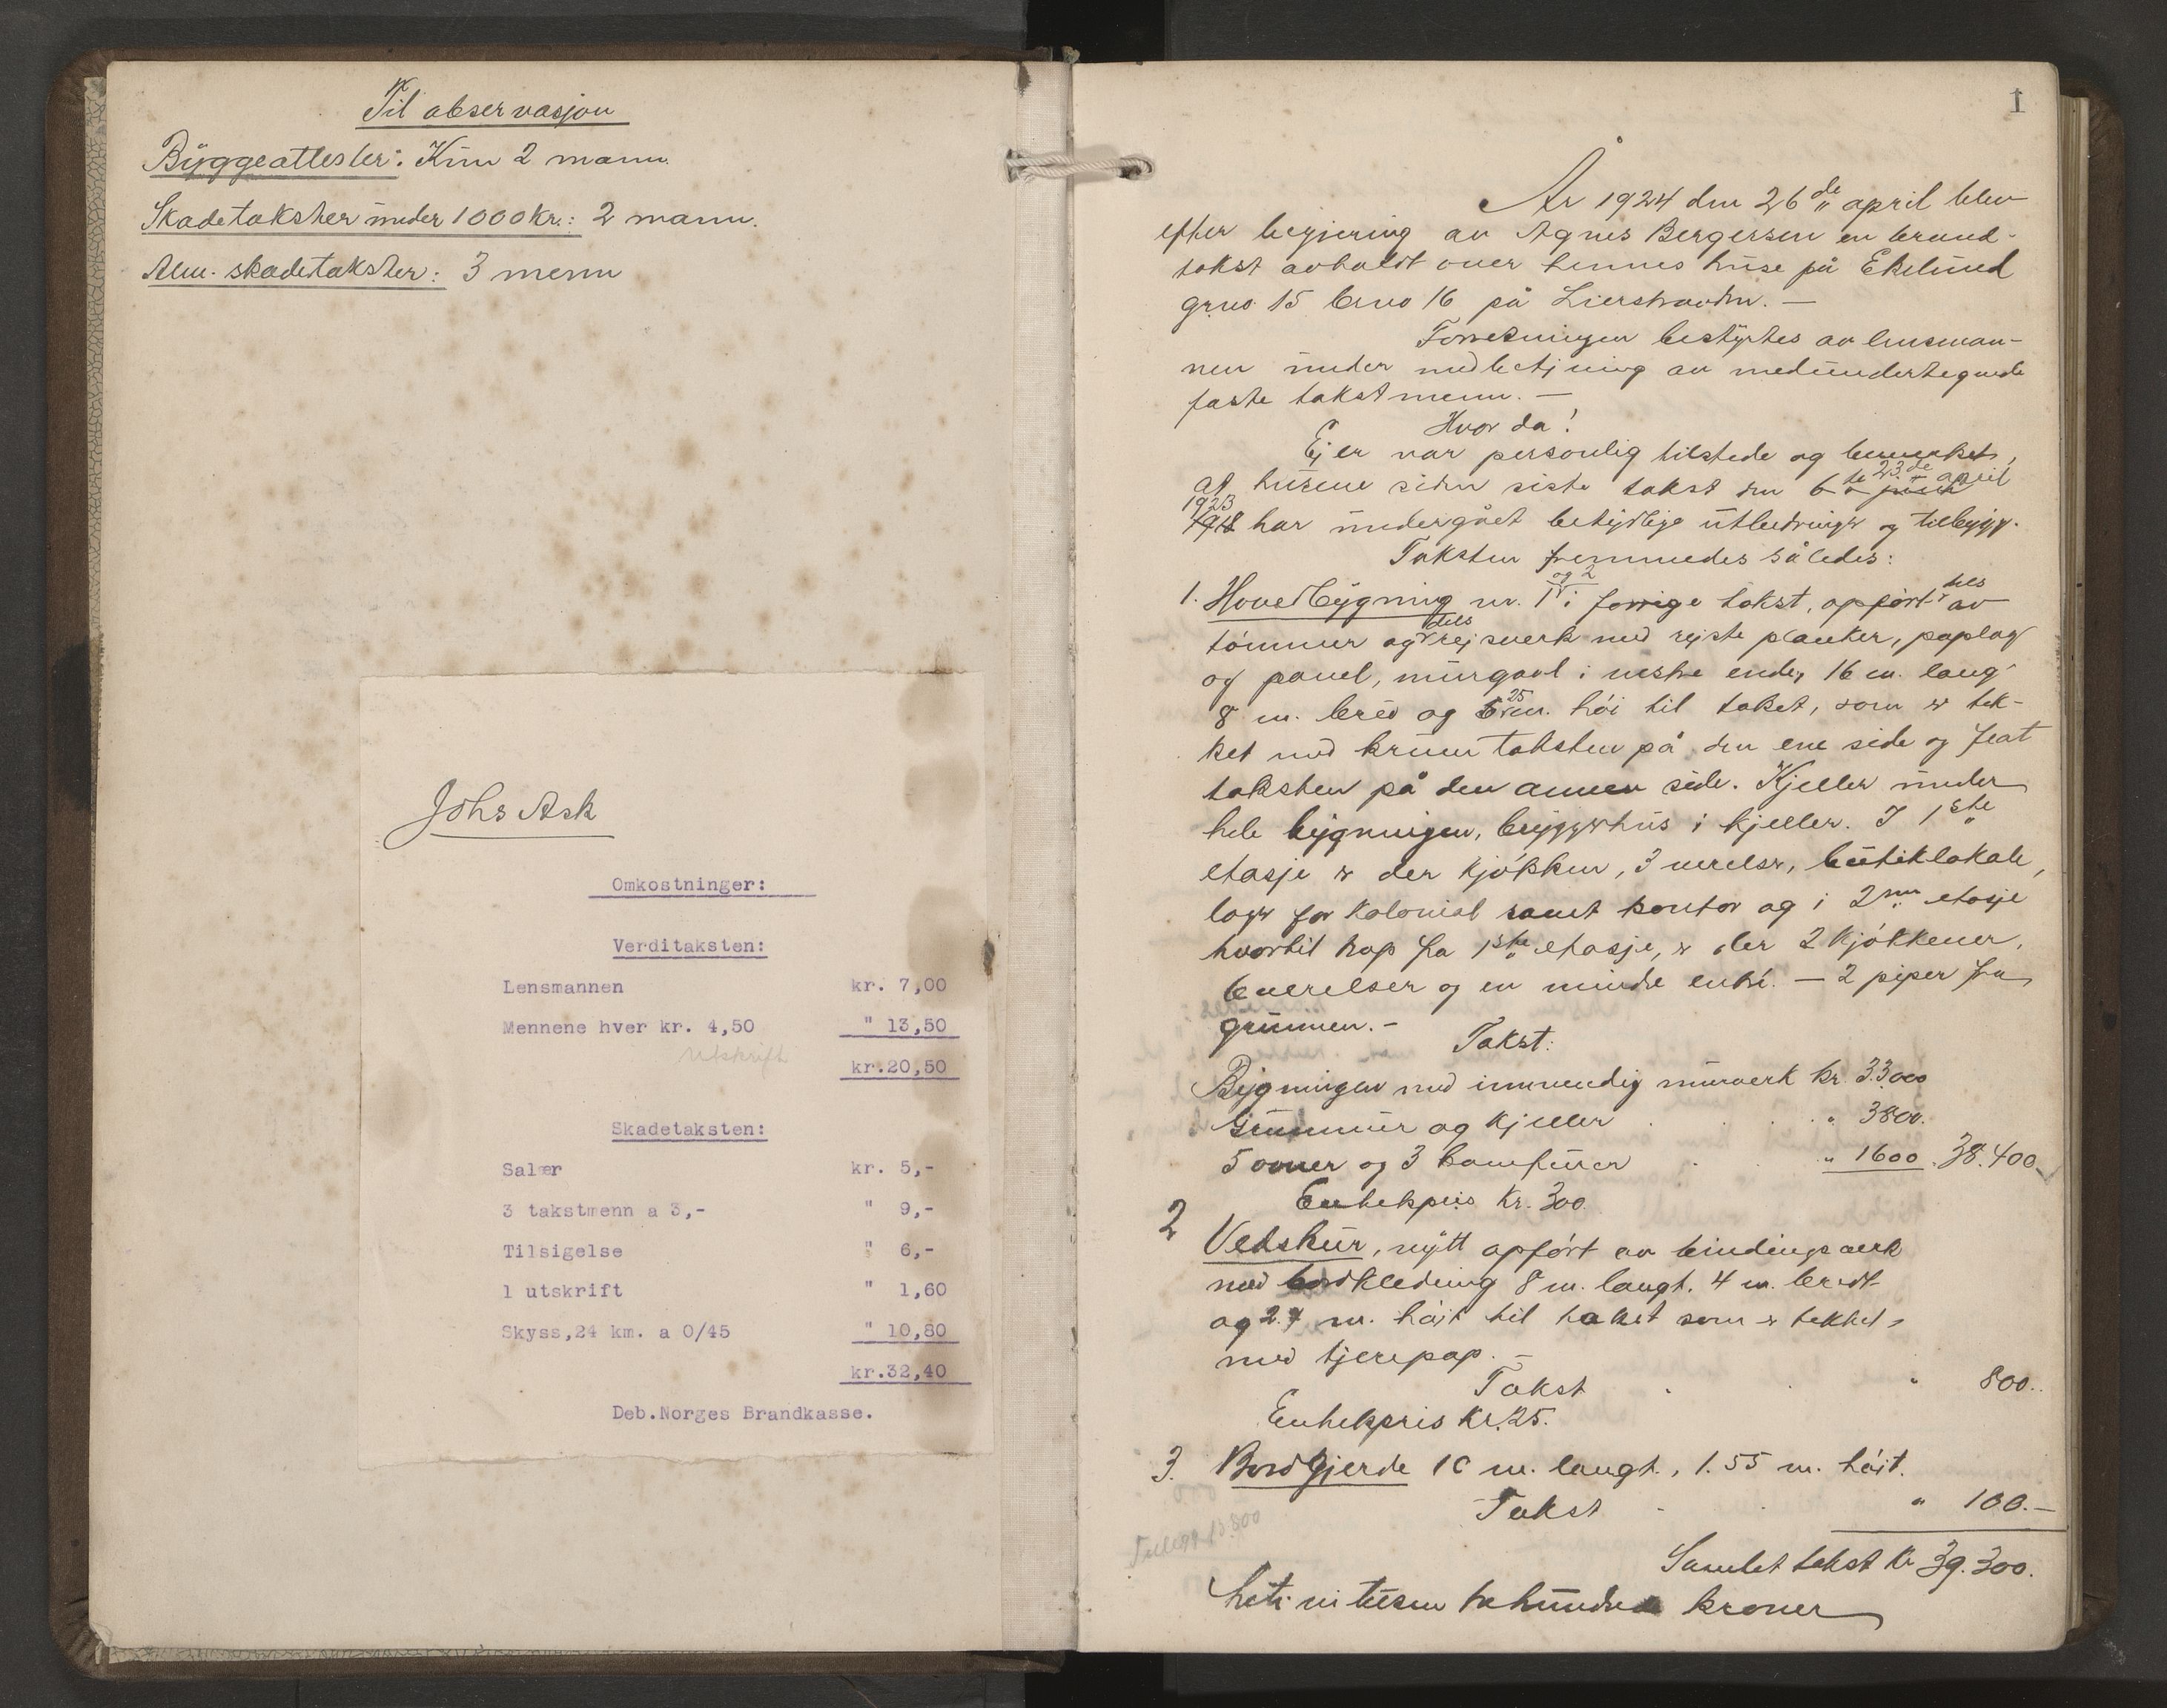 Til observasjon
Byggeattester: Kun 2 mann.
Skadetakster under 1000 kr.: 2 mann.
Alm. skadetakster: 3 menn
Johs Ask
Omkostninger:
Verditaksten:
Lensmannen kr. 7,00
Mennene hver kr. 4,50 " 13,50
Utskrift
kr.20,50
Skadetaksten:
Salær kr. 5,-
3 takstmenn a 3,- " 9,-
Tilsigelse " 6,-
1 utskrift " 1,60
Skyss,24 km. a 0/45 " 10,80
kr.32,40
Deb.Norges Brandkasse.
1
År 1924 den 26de april blev
efter begjering av Agnes Bergersen en brand-
takst avholdt over hennes huse på Ekelund
grno 15 brno 16 på Lierstranden. —
Forretningen bestyrtes av lensman-
nen under medbetjening av medundertegnede
faste takstmenn. —
Hvor da!
Eier var personlig tilstede og bemerket,
at husene siden siste takst den 6te 23de april
1923
1918 har undergået betydelige utbedringer og tilbygg.
Taksten fremmedes således:
1. Hovedbygning nr. 1 og 2 i forrige takst, opført dels av
tömmer og dels rejsverk med rejste planker, paplag
og panel, murgavl i vestre ende, 16 m. lang
8 m. bred og 6.25 m. höi til taket, som er tek-
ket med krum taksten på den ene side og flat
taksten på den annen side. Kjeller under
hele bygningen, bryggerhus i kjeller. I 1ste
etasje er der kjökken, 3 verelser, butiklokale,
lager for kolonial samt kontor og i 2nen etasje
hvortil trap fra 1ste etasje, er der 2 kjökkener,
6 verelser og en mindre entré. — 2 piper fra
grunnen. -
Takst:
Bygningen med innvendig murverk kr. 33.000
Grunmur og kjeller " 3800.
5 ovner og 3 komfurer " 1600. 38.400
Enhetspris kr. 300.
2 Vedskur, nytt opfört av bindingsverk
med bordkledning 8 m. langt. 4 m. bredt
og 2.7 m. höit til taket som er tekket
med tjerepap. —
Takst " 800..
Enhetspris kr. 25.
3. Bordgjerde 10 m. langt., 1.55 m. höit.
Takst " 100.—
Tillegg 13800
Samlet takst kr 39.300.
tretti ni tusen tre hundre kroner